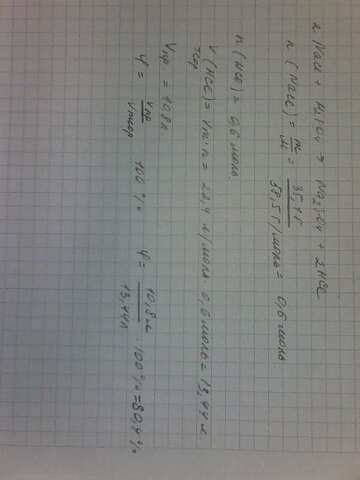 2 NaCl + H₂SO₄ → Na₂SO₄ + 2HCl
n (NaCl) = m/M = 35,1 г / 58,5 г/моль = 0,6 моль
n (HCl) = 0,6 моль.
V (HCl) = Vm · n = 22,4 л/моль · 0,6 моль = 13,44 л.
теор
Vпр = 10,8 л
φ = Vпр / Vтеор 100 % φ = 10,8 л / 13,44 л · 100 % = 80,4 %